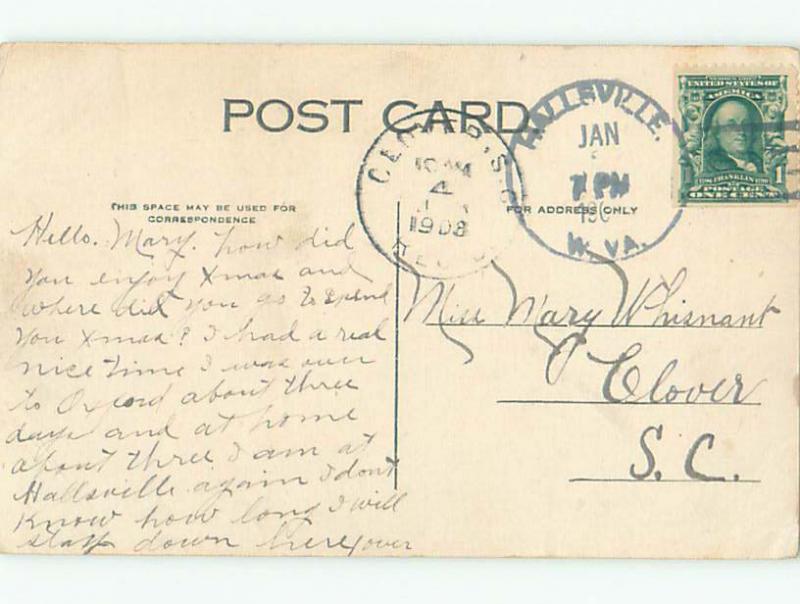 POST CARD
HALLSVILLE.
JAN
7 PM
190
W. VA.
CLOVER, S.C.
10 AM
4
1908
UNITED STATES OF
AMERICA
FRANKLIN
POSTAGE
1 ONE CENT 1
THIS SPACE MAY BE USED FOR
CORRESPONDENCE
FOR ADDRESS ONLY
Hello. Mary. how did
you enjoy Xmas and
where did you go to spend
you Xmas? I had a real
nice time I was over
to Oxford about three
days and at home
about three I am at
Hallsville again I dont
know how long I will
stay down here, over
Miss Mary Whisnant
Clover
S.C.